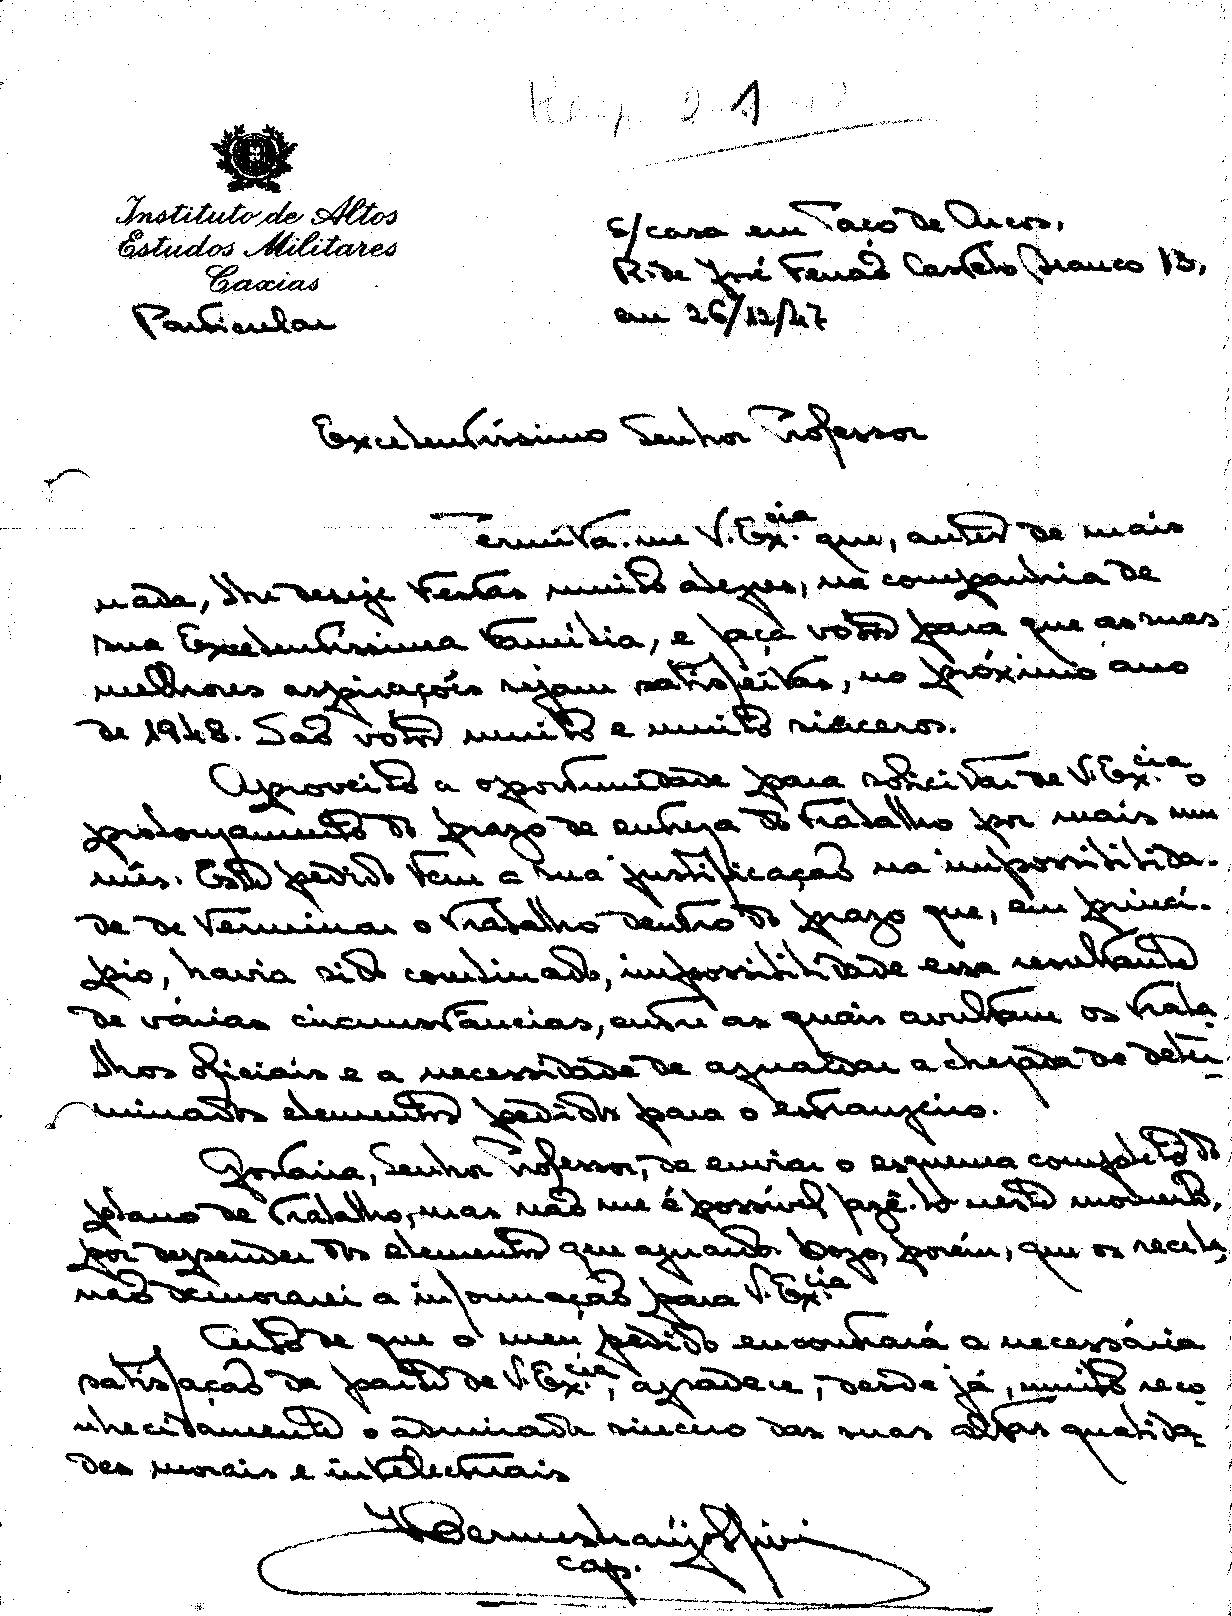 1
Instituto de Altos
Estudos Militares
Caxias
Particular
s/casa em Paço de Arcos,
R. de José Castelo Branco 13,
em 26/12/47
Excelentíssimo Senhor Professor
Permita-me V. Ex.cia que, antes de mais
nada, lhe deseje Festas muito alegres, na companhia de
sua Excelentíssima Família, e faça votos para que as suas
melhores aspirações sejam satisfeitas, no próximo ano
de 1948. São votos muito e muito sinceros.
Aproveito a oportunidade para solicitar de V. Ex.cia o
prolongamento do prazo de entrega do trabalho por mais um
mês. Este pedido tem a sua justificação na impossibilida-
de de terminar o trabalho dentro do prazo que, em princí-
pio, havia sido combinado, impossibilidade essa resultante
de várias circunstâncias, entre as quais avultam os traba-
lhos oficiais e a necessidade de aguardar a chegada de deter-
minados elementos pedidos para o estrangeiro.
Gostaria, Senhor Professor, de enviar o esquema completo do
plano de trabalho, mas não me é possível fazê-lo neste momento,
por depender dos elementos que aguardo. Logo, porém, que os receba,
não demorarei a informação para V. Ex.cia
Certo de que o meu pedido encontrará a necessária
satisfação da parte de V. Ex.cia, agradece, desde já, muito reco-
nhecidamente o admirador sincero das suas altas qualida-
des morais e intelectuais
Hermes Araújo
cap.